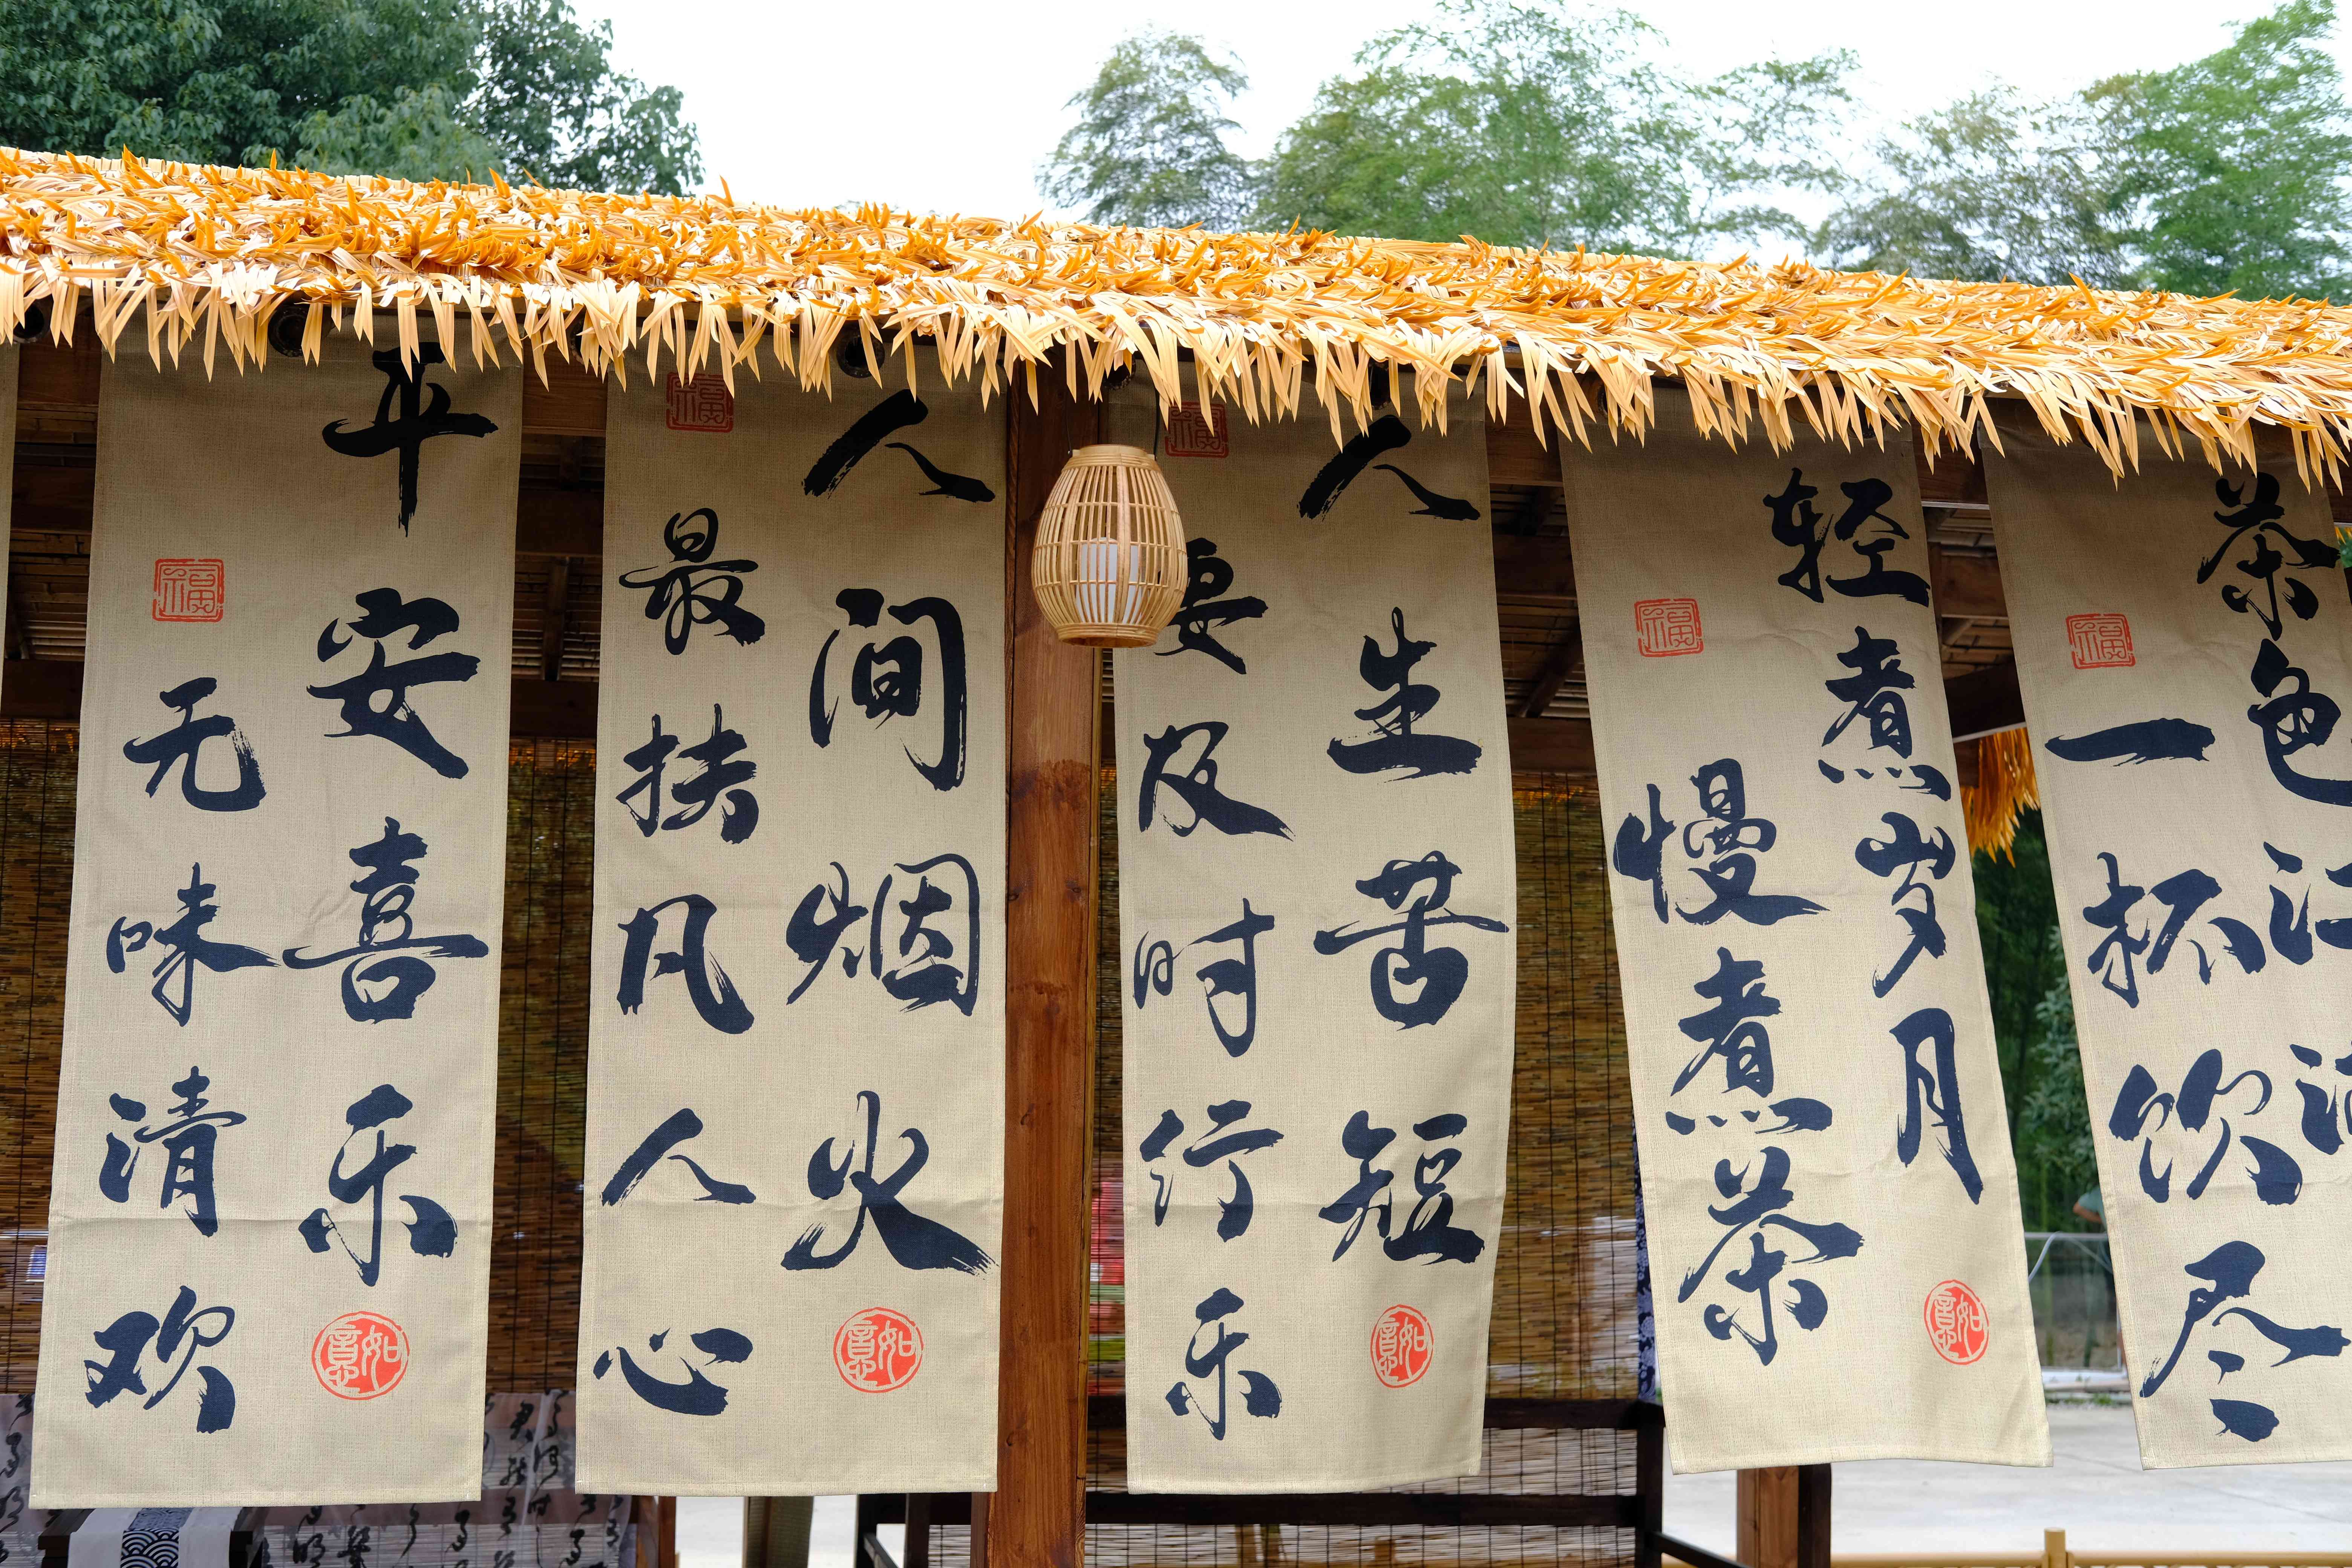 平安喜乐
福
无味清欢
如意
人间烟火
福
最扶凡人心
如意
人生苦短
福
要及时行乐
如意
轻煮岁月
福
慢煮茶
如意
茶色江
福
一杯饮尽